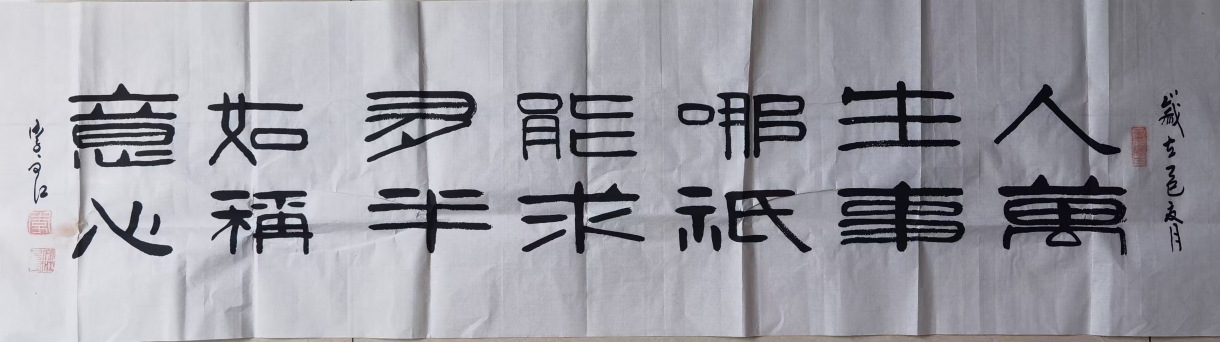 歲在乙巳夏月
人生哪能多如意
萬事祇求半稱心